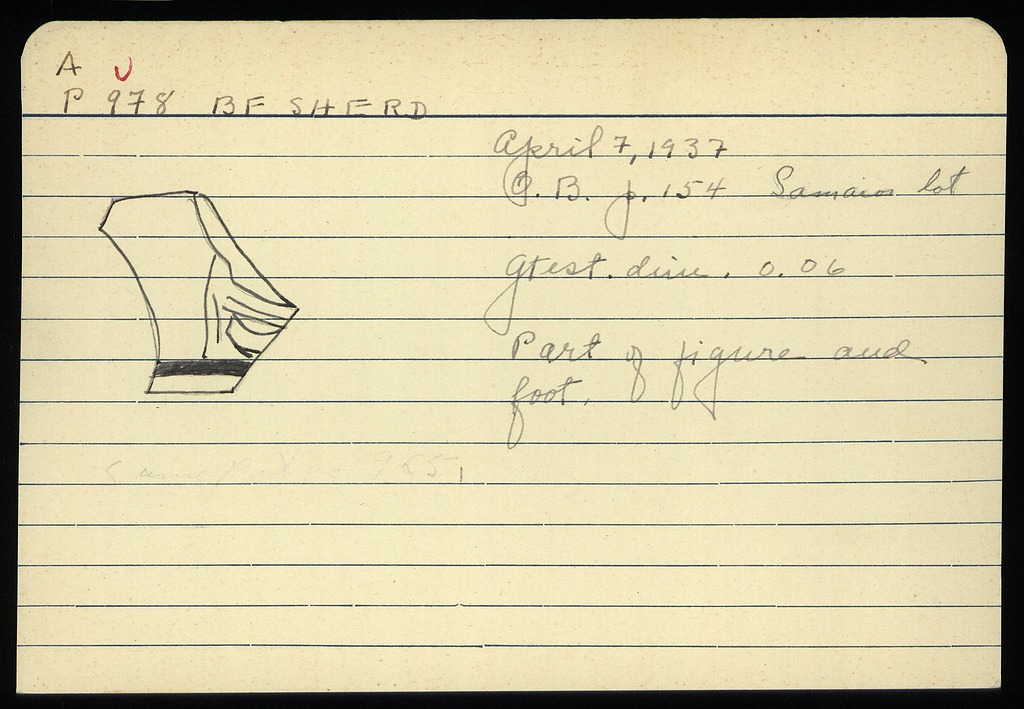 A J
P 978 BF SHERD
April 7, 1937
O.B. p. 154 Samaios lot
Gtest. dim. 0.06
Part of figure and
foot.
Same P as 965,